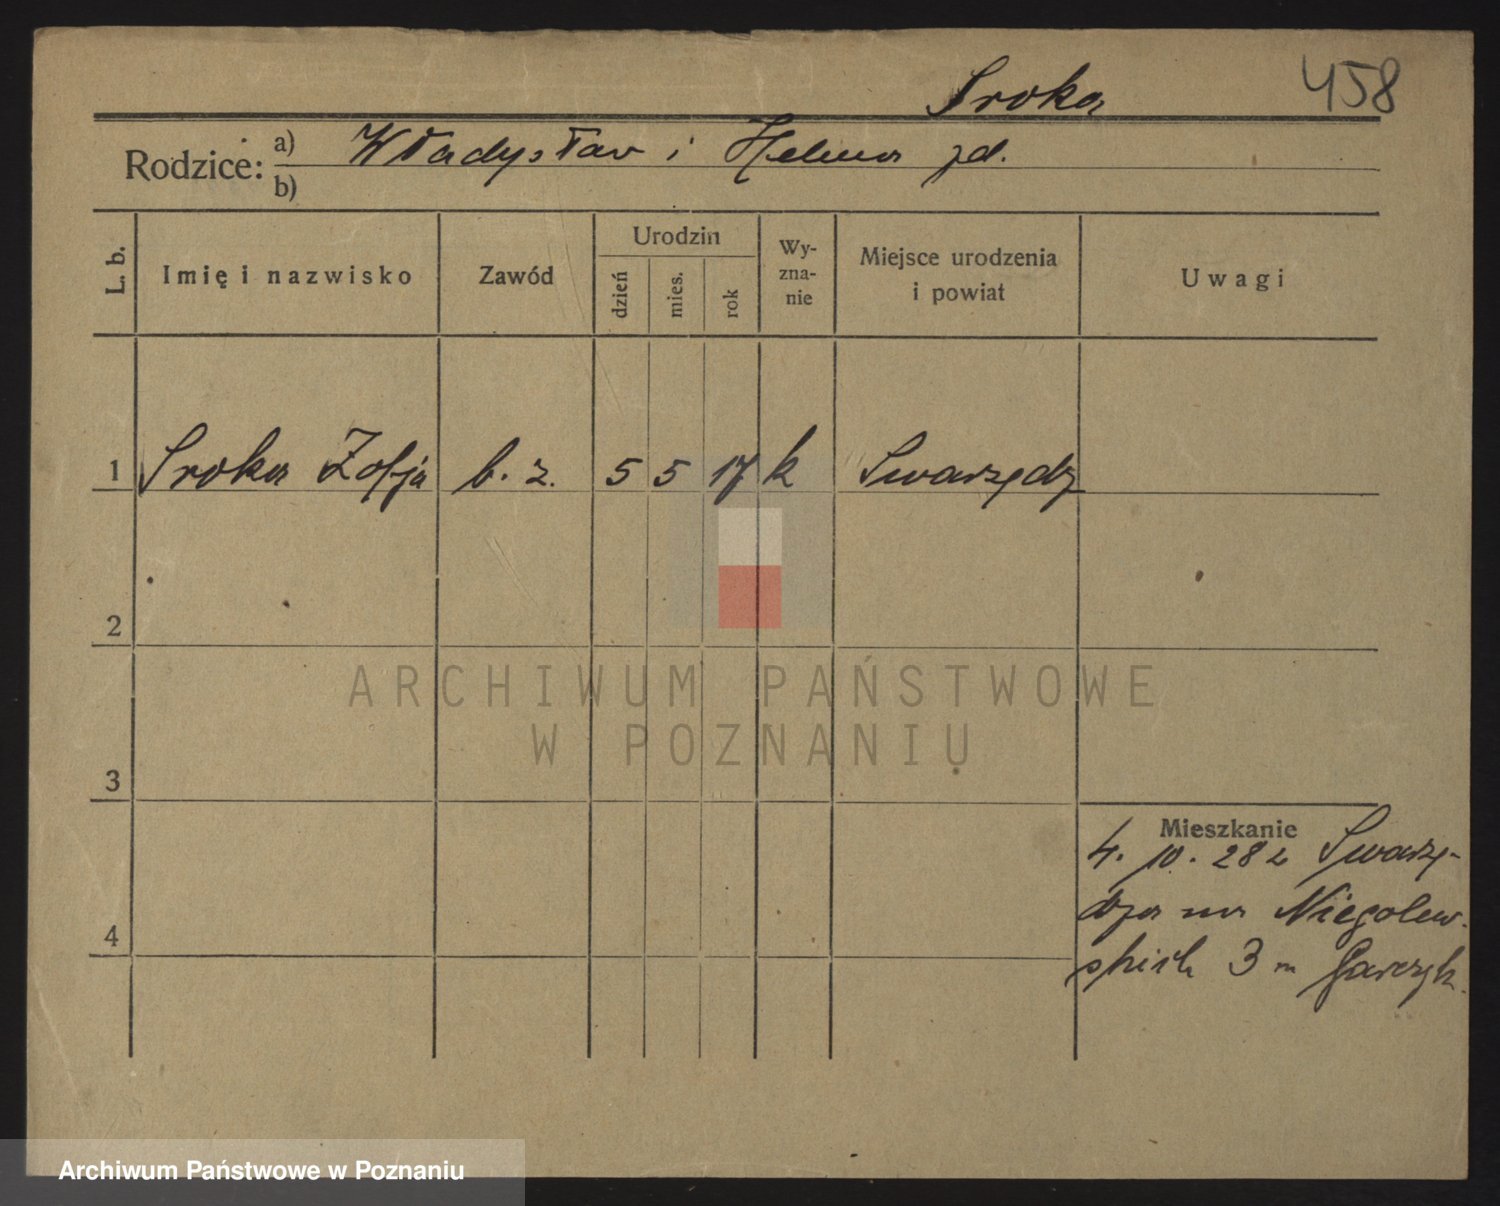 Sroka 458
Rodzice: a) Władysław i Helena zd.
b)
L. b. Imię i nazwisko Zawód Urodzin dzień mies. rok Wy-zna-nie Miejsce urodzenia i powiat Uwagi
1 Sroka Zofja b. z. 5 5 17 k Swarzędz
2
ARCHIWUM PAŃSTWOWE
W POZNANIU
3
Mieszkanie
4. 10. 28 z Swarzę-
dza na Niegolew-
4
skich 3 m Garczyk.
Archiwum Państwowe w Poznaniu